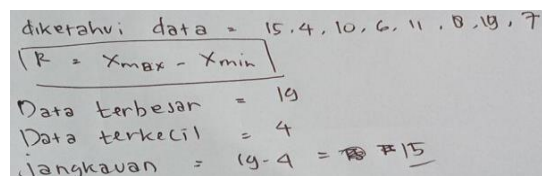 diketahui data = 15.4, 10, 6, 11, 8, 19, 7
R = Xmax - Xmin
Data terbesar = 19
Data terkecil = 4
Jangkauan = 19-4 = 15